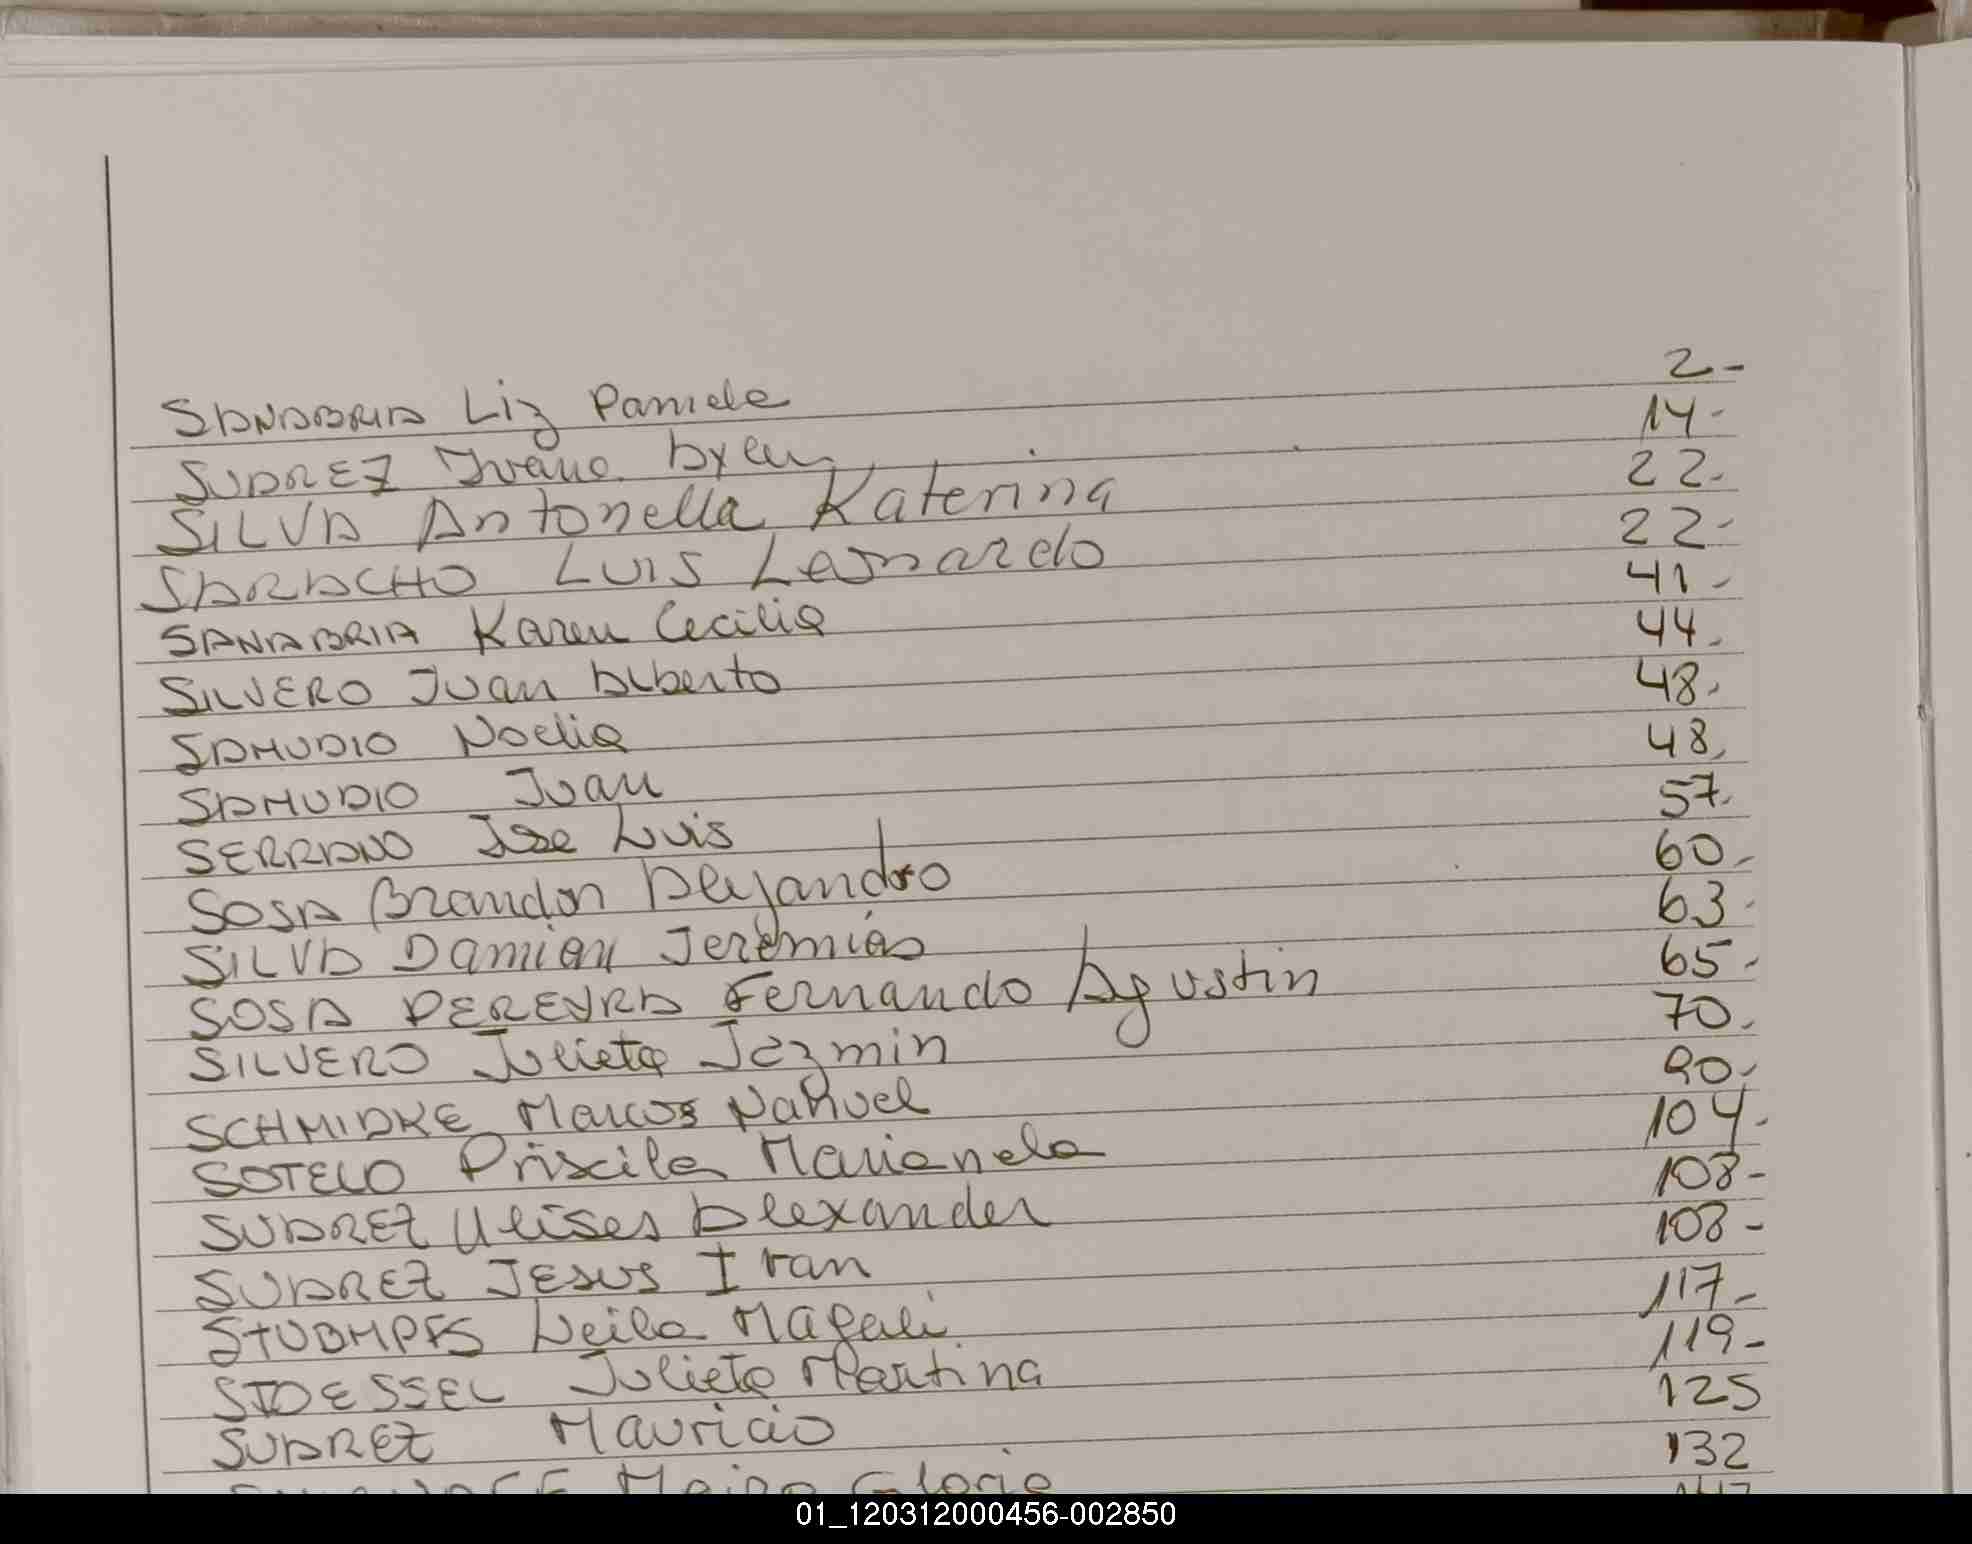 SANABRIA Liz Pamela 2-
SUAREZ Ivana Ayen 14-
SILVA Antonella Katerina 22-
SARACHO LUIS Leonardo 22-
SANABRIA Karen Cecilia 41-
SILVERO Juan Alberto 44-
SAMUDIO Noelia 48-
SAMUDIO Juan 48-
SERRANO Jose Luis 57-
SOSA Brandon Alejandro 60-
SILVA Damian Jeremias 63-
SOSA PEREYRA Fernando Agustin 65-
SILVERO Julieta Jazmin 70-
SCHMIDKE Marcos Nahuel 90-
SOTELO Priscila Marianela 104-
SUAREZ Ulises Alexander 108-
SUAREZ JESUS Ivan 108-
STUBMPFS Leila Magali 117-
STOESSEL Julieta Martina 119-
SUAREZ Mauricio 125
132
Gloria
01_120312000456-002850